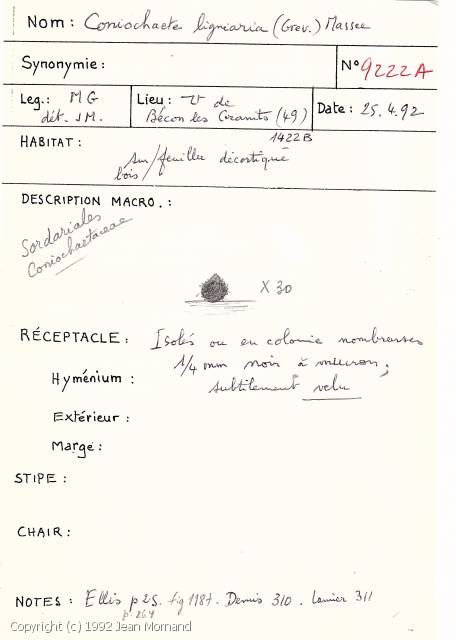 Nom : Coniochaete ligniaria (Grev.) Massee
Synonymie :
N° 9222A
Leg. : MG
dét. JM.
Lieu : de
Bécon les Granits (49)
Date : 25.4.92
1422B
HABITAT :
sur/feuillu décortiqué
bois/
DESCRIPTION MACRO. :
Sordariales
Coniochaetaceae
X 30
RÉCEPTACLE : Isolés ou en colonie nombreuses
1/4 mm noir à mucron ;
Hyménium :
subtilement velu
Extérieur :
Marge :
STIPE :
CHAIR :
NOTES : Ellis p 25. fig 1187. Dennis 310. Lanier 311
p. 264
Copyright (c) 1992 Jean Mornand